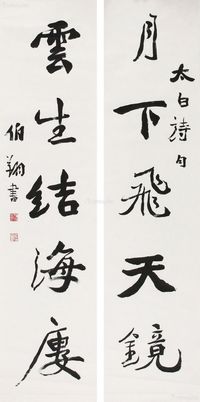 月下飛天鏡
太白詩句
雲生結海廔
伯翔書